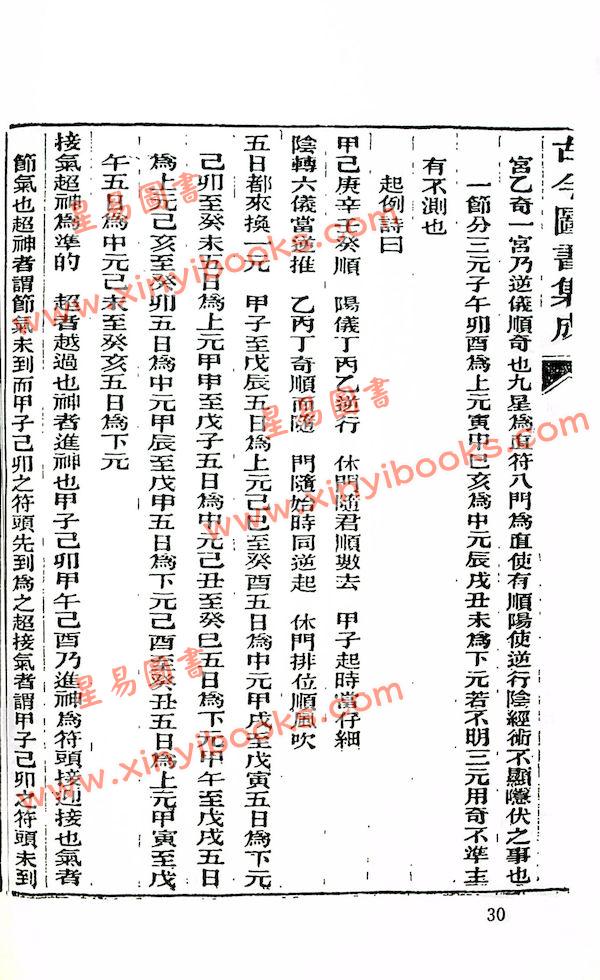 古今圖書集成
宮乙奇一宮乃逆儀順奇也九星爲直符八門爲直使有順陽使逆行陰經術不顯隱伏之事也
一節分三元子午卯酉爲上元寅申巳亥爲中元辰戌丑未爲下元若不明三元用奇不準主
有不測也
起例詩曰
甲己庚辛壬癸順 陽儀丁丙乙逆行 休門隨君順數去 甲子起時當仔細
陰轉六儀當逆推 乙丙丁奇順而隨 門隨始時同逆起 休門排位順風吹
五日都來換一元 甲子至戊辰五日爲上元己巳至癸酉五日爲中元甲戌至戊寅五日爲下元
己卯至癸未五日爲上元甲申至戊子五日爲中元己丑至癸巳五日爲下元甲午至戊戌五日
爲上元己亥至癸卯五日爲中元甲辰至戊申五日爲下元己酉至癸丑五日爲上元甲寅至戊
午五日爲中元己未至癸亥五日爲下元
接氣超神爲準的 超者越過也神者進神也甲子己卯甲午己酉乃進神爲符頭接迎接也氣者
節氣也超神者謂節氣未到而甲子己卯之符頭先到爲之超接氣者謂甲子己卯之符頭未到
30
星易圖書
www.xinyibooks.com
星易圖書
www.xinyibooks.com
星易圖書
www.xinyibooks.com